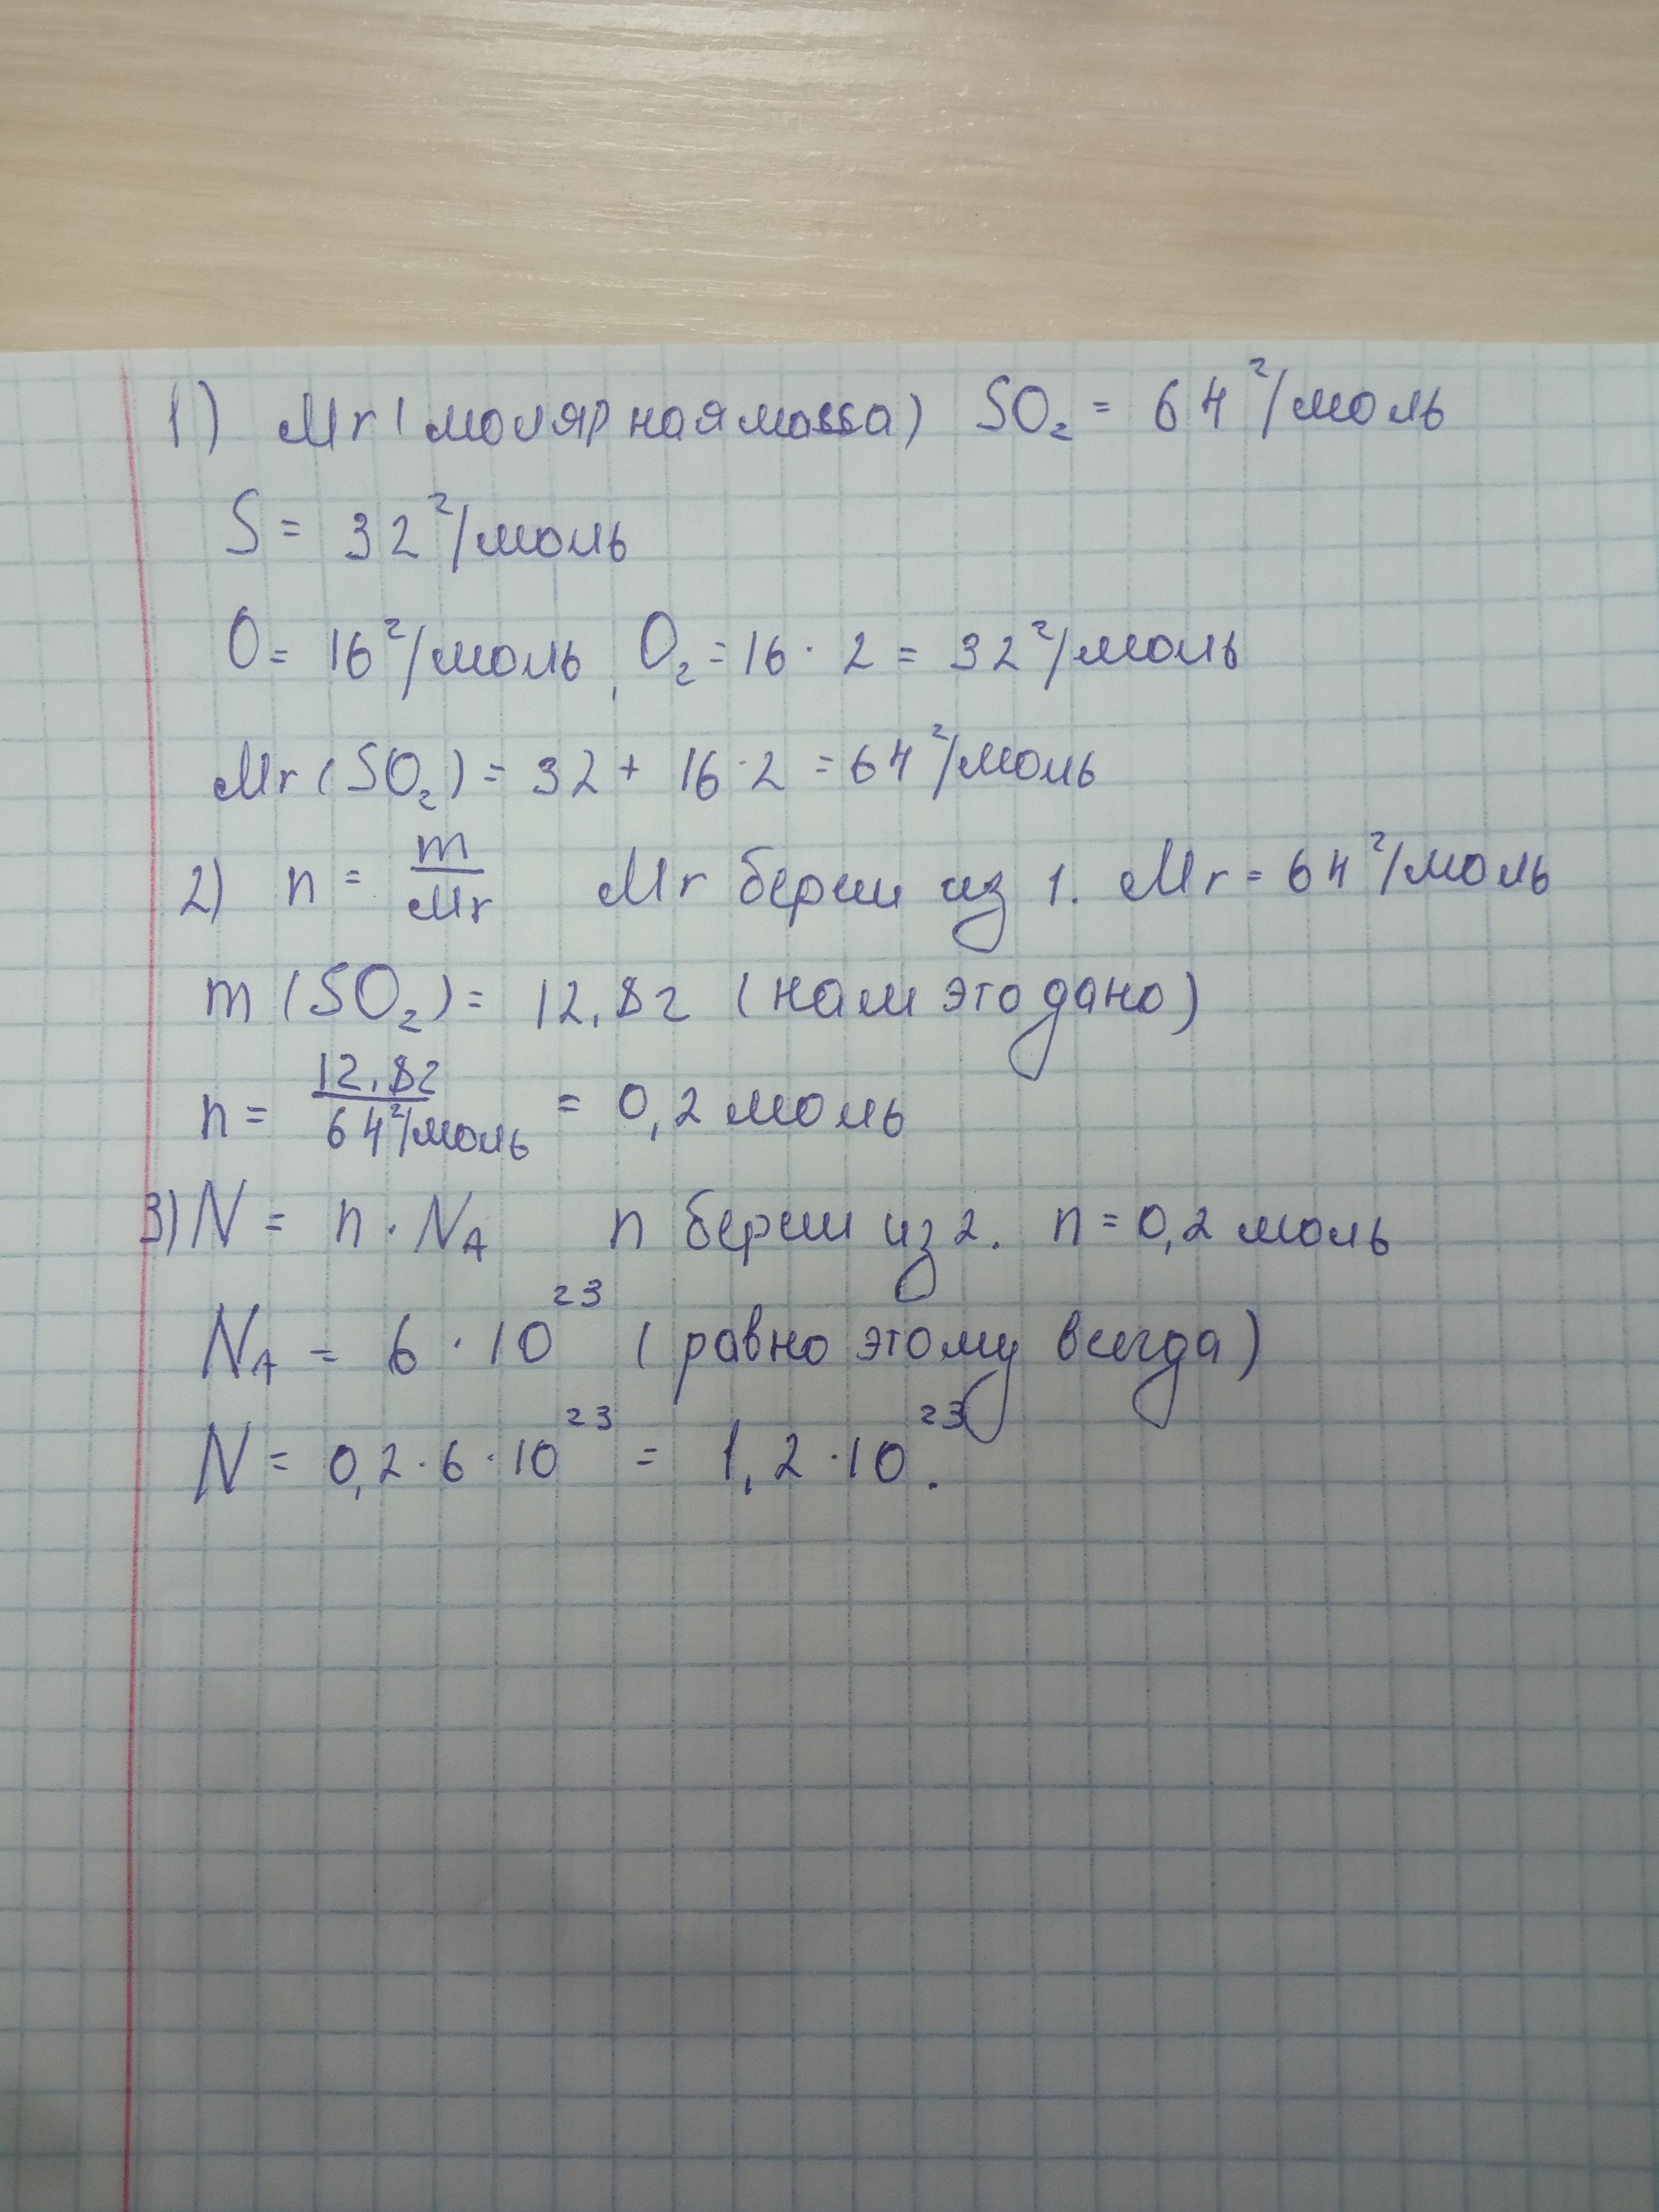 1) Mr (молярная масса) SO₂ = 64 г/моль
S = 32 г/моль
O = 16 г/моль, O₂ = 16 · 2 = 32 г/моль
Mr (SO₂) = 32 + 16 · 2 = 64 г/моль
2) n = m/Mr Mr берем из 1. Mr = 64 г/моль
m (SO₂) = 12,8 г (нам это дано)
n = 12,8г/64 г/моль = 0,2 моль
3) N = n · Nᴀ n берем из 2. n = 0,2 моль
Nᴀ = 6 · 10²³ (равно этому всегда)
N = 0,2 · 6 · 10²³ = 1,2 · 10²³.